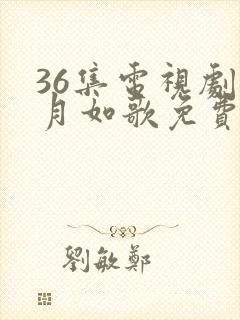 36集電視劇
月如歌免費
劉敏鄭